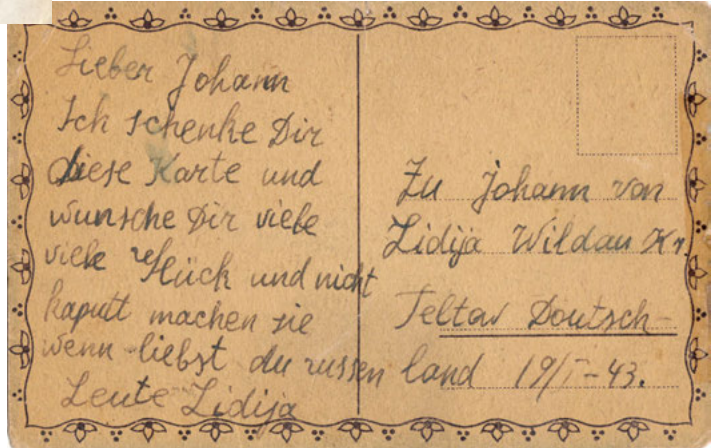 Lieber Johann
Ich schenke Dir
diese Karte und
wunsche Dir viele
viele Glück und nicht
kaputt machen sie
wenn liebst du russen
Leute Lidija
Zu Johann von
Lidija Wildau Kr.
Teltow Doutsch-
land 19/I-43.